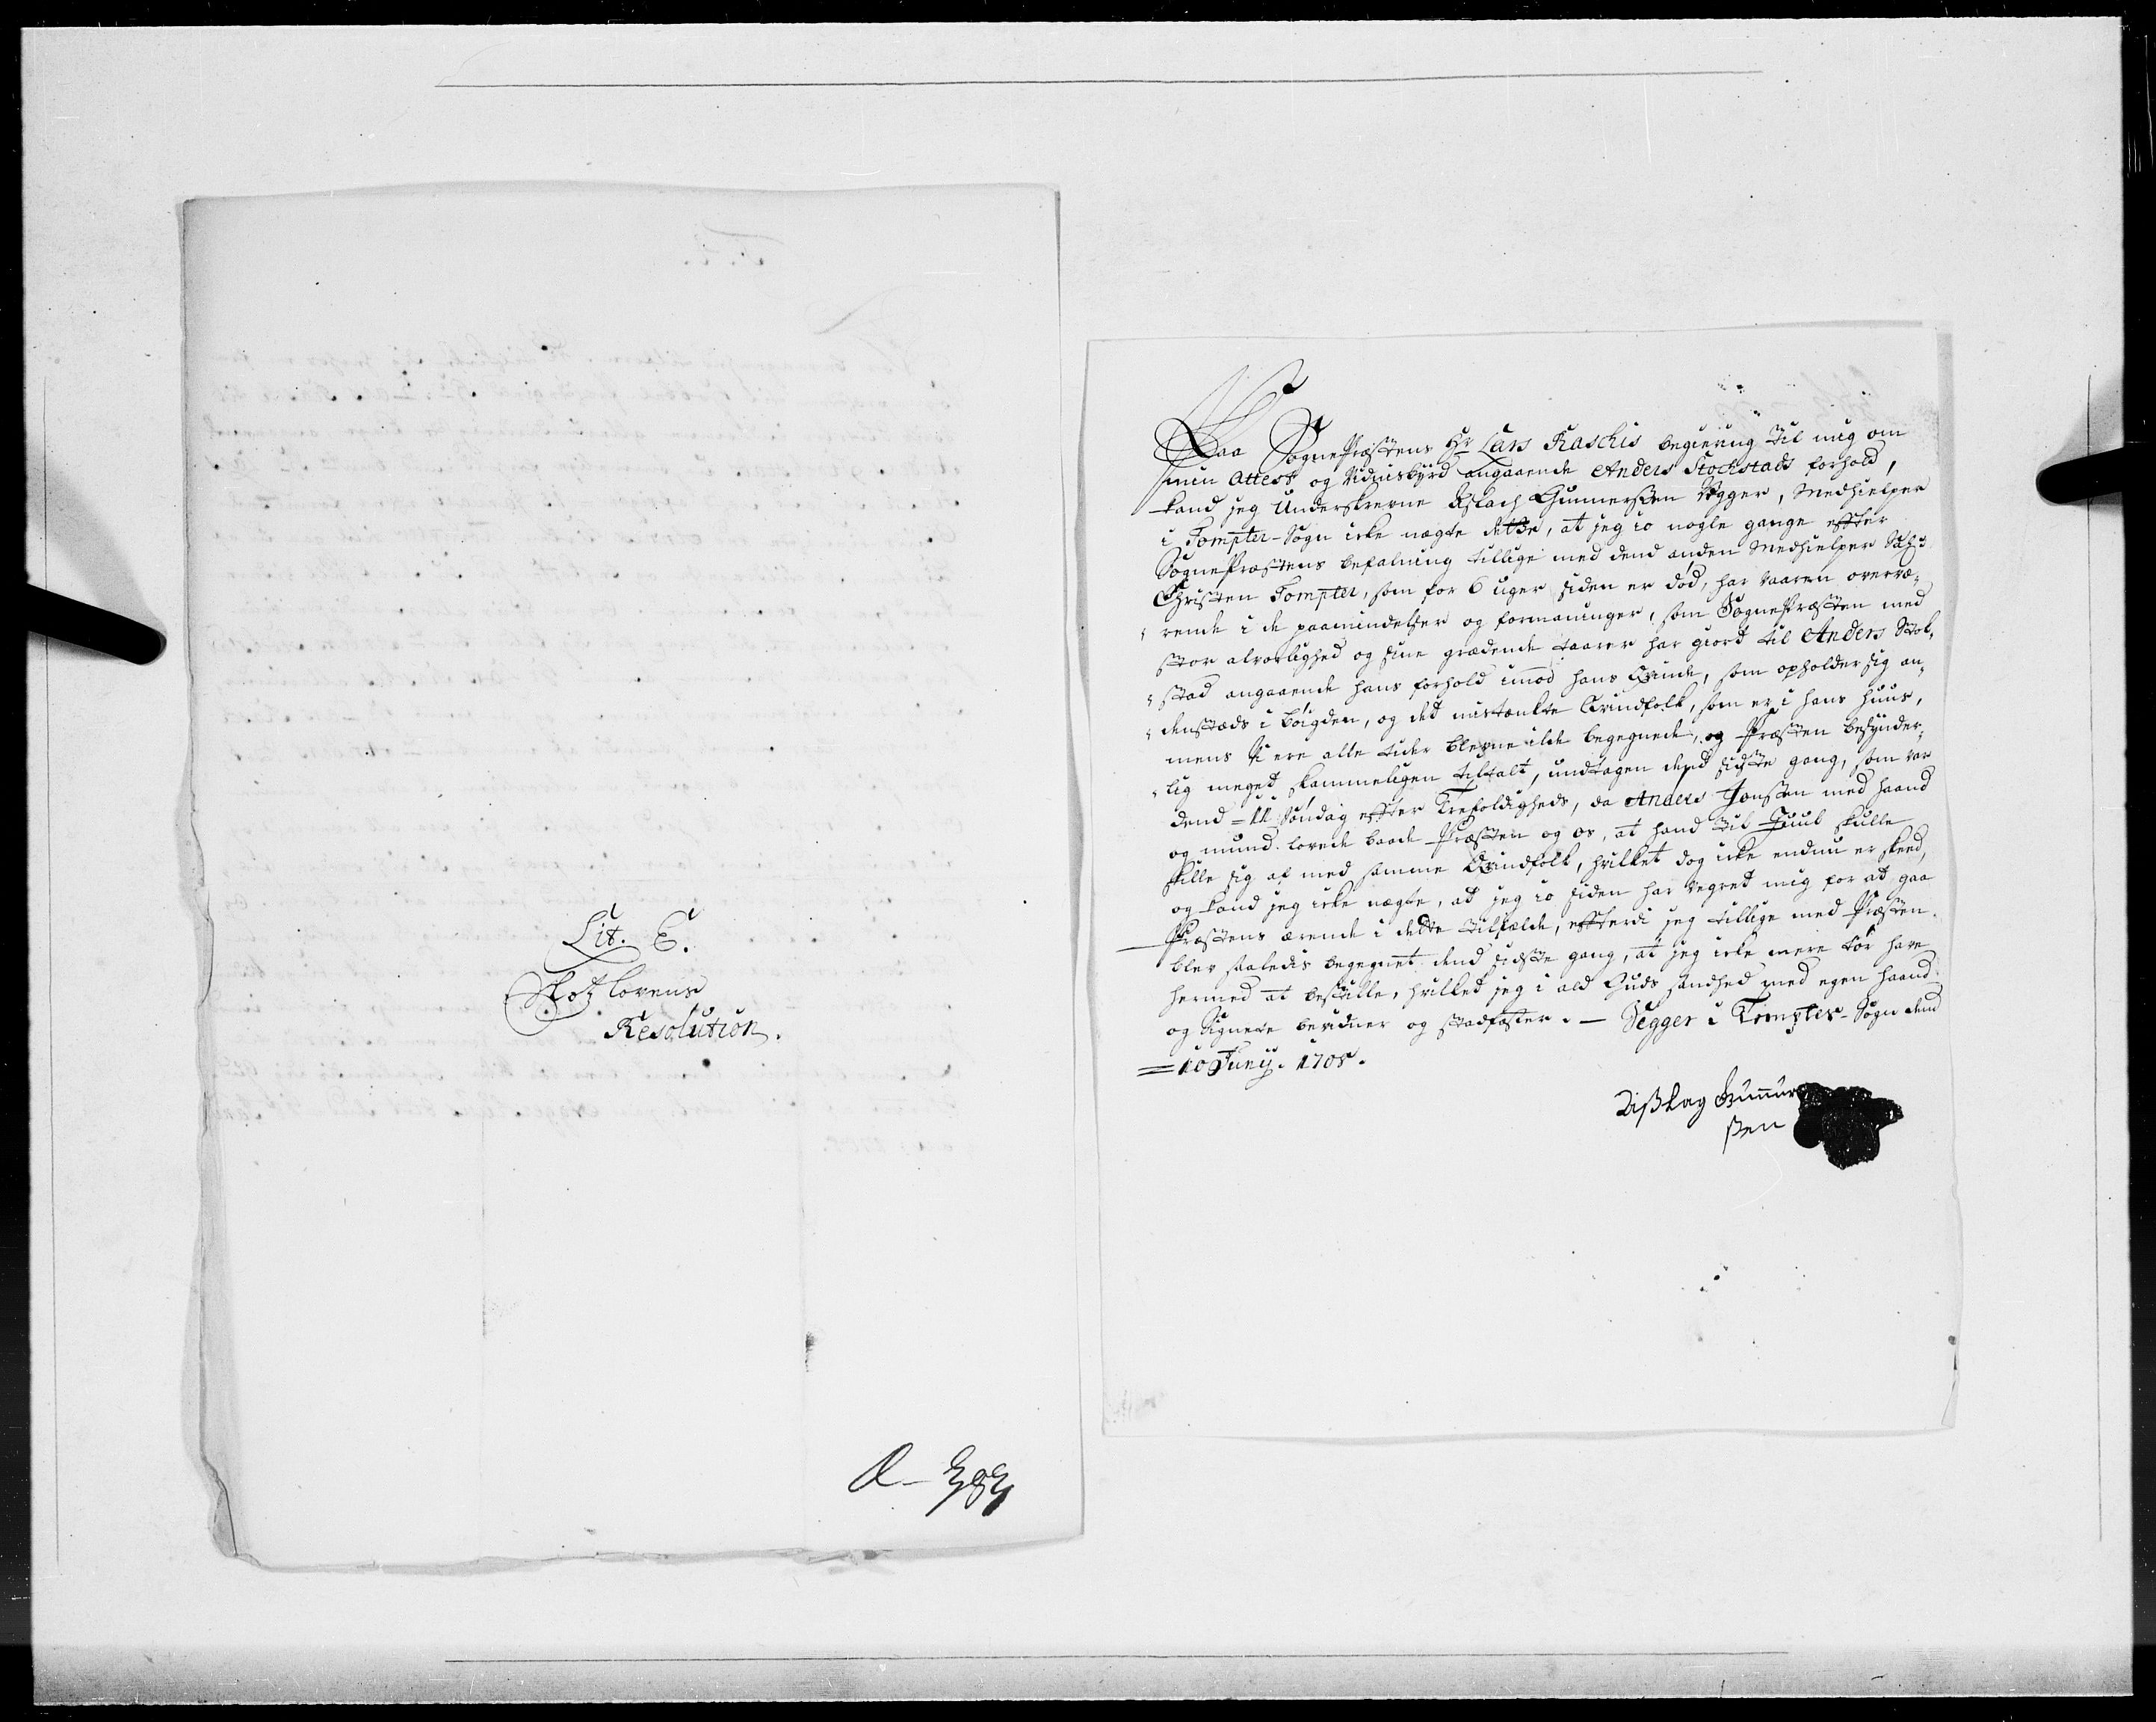 Lit. E.
Resolution.
Paa SognePræstens Hr Lars Raschis begiering til mig om
min Attest og Vidnisbyrd angaaende Anders Stochstads forhold,
kand jeg Underskrevne Aslach Gunnerssen Vegger, Medhielper
i Tompter-Sogn icke negte dette, at jeg jo nogle gange effter
SognePræstens befalning tillige med dend anden Medhielper Sal:
Christen Tompter, som for 6 uger siden er død, har vaaren overvæ-
rende i de paamindelser og formaninger, som SognePræsten med
stor alvorlighed og sine grædende taarer har giort til Anders Stok-
stad angaaende hans forhold imod hans Qvinde, som opholder sig an-
denstæds i bøigden, og det mistænkte Qvindfolk, som er i hans huus,
mens Vi ere alle tider blevne ilde begegnede, og Præsten besynder-
lig meget skammeligen tiltalt, undtagen dend sidste gang, som var
dend = 11 Søndag effter Trefoldigheds, da Anders Jonssen med haand
og mund lovede baade Præsten og os, at hand til Juul skulle
skille sig af med samme Qvindfolk, hvilket dog icke endnu er skeed,
og kand jeg icke negte, at jeg jo siden har vegret mig for at gaa
Præstens ærende i dette tilfælde, efterdi jeg tillige med Præsten
blev saaledis begegnet dend sidste gang, at jeg icke mere tør have
hermed at bestille, hvilked jeg i ald Guds sandhed med egen haand
og Signete bevidner og stadfæster. — Vegger i Tompter-Sogn dend
= 10 Junij. 1705.
Aißlag Gunnur
ßen